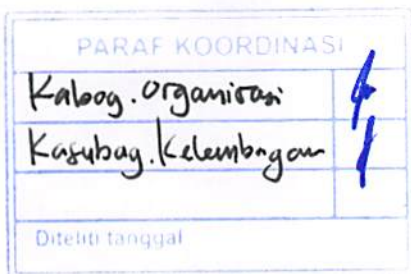 PARAF KOORDINASI
Kabag. Organisasi
Kasubag. Kelembagaan
Diteliti tanggal